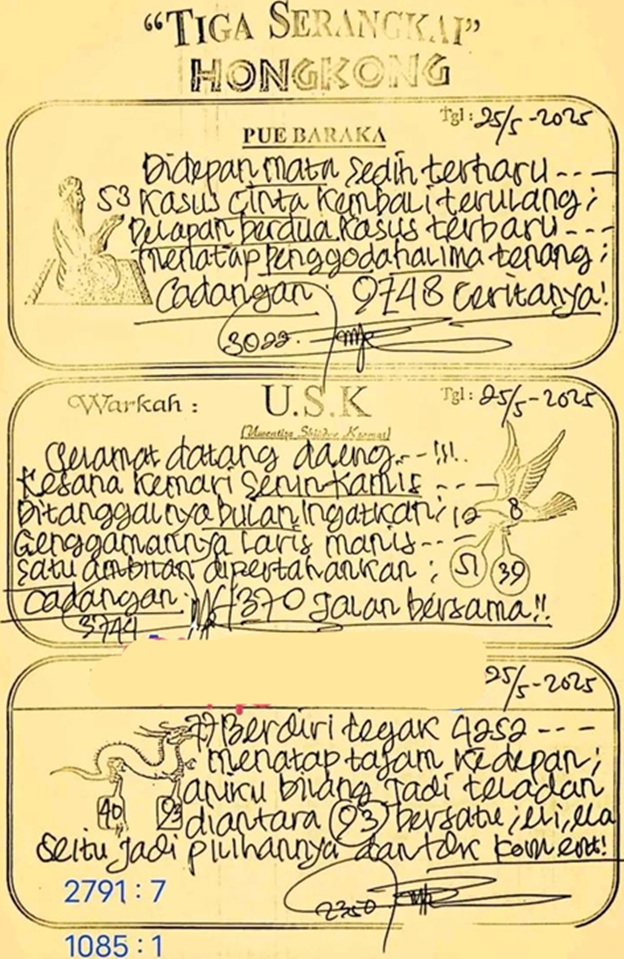 "TIGA SERANGKAI"
HONGKONG
Tgl : 25/5-2025
PUE BARAKA
Didepan mata sedih terharu ----
53 Kasus cinta kembali terulang ;
Delapan berdua kasus terbaru ---
menatap penggodaha lima tenang ;
Cadangan : 9748 Ceritanya!
3022.
Warkah :
U.S.K
Tgl : 25/5-2025
Selamat datang daeng...!!!..
Kesana kemari Senin-Kamis ----
Ditanggalnya bulan ingatkan ; 12 8
Genggamannya Laris manis ---
Satu ambilan dipertahankan ; 51 39
Cadangan : 1370 Jalan bersama!!
3744
25/5-2025
77 Berdiri tegak 4252 ----
menatap tajam kedepan ;
aniku bilang jadi teladan
40 93 diantara 93 bersatu ;
Seitu jadi pilihannya
2350
2791 : 7
1085 : 1